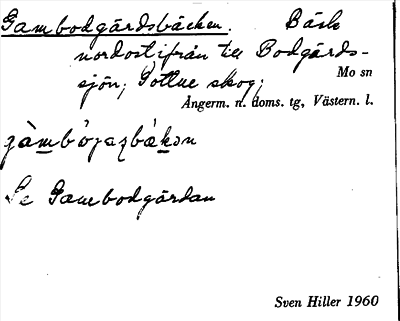 Gambodgårdsbäcken. Bäck
nordostifrån till Bodgårds-
sjön; Tottne skog;
Mo sn
Ångerm. n. doms. tg, Västern. l.
Se Gambodgårdan
Sven Hiller 1960